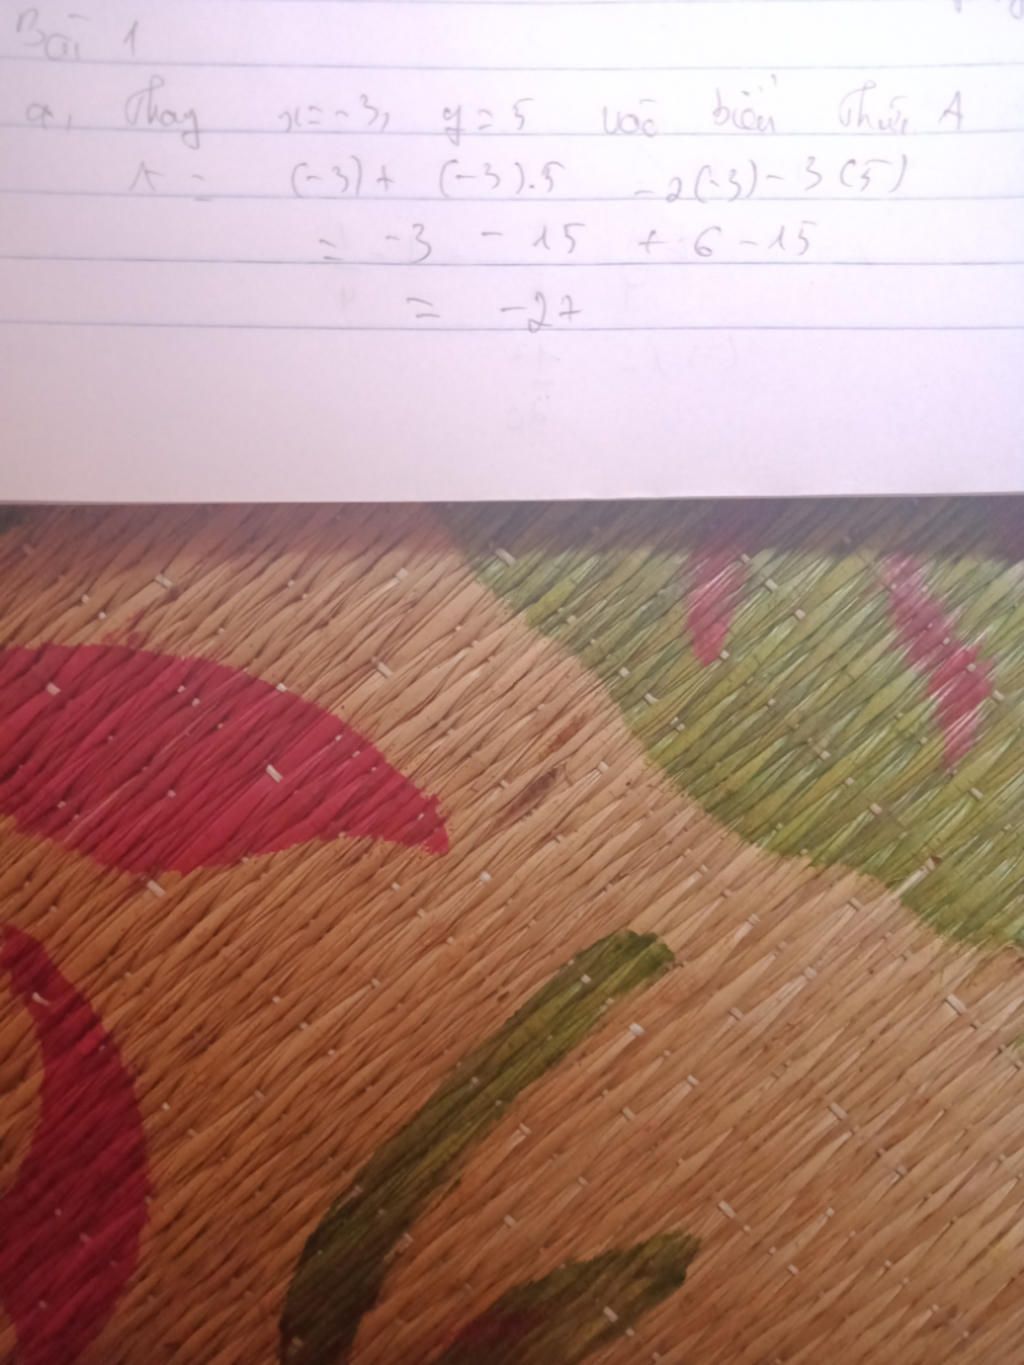 Bài 1
a, Thay x = -3, y = 5 vào biểu thức A
A = (-3) + (-3).5 - 2(-3) - 3(5)
= -3 - 15 + 6 - 15
= -27